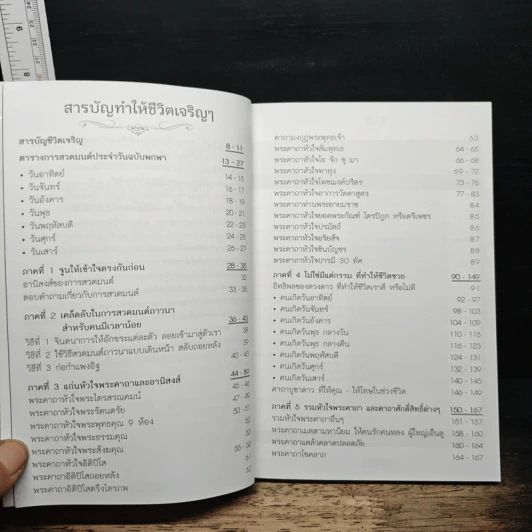 สารบัญทำให้ชีวิตเจริญๆ
สารบัญชีวิตเจริญ 8 - 11
ตารางการสวดมนต์ประจำวันฉบับพกพา 13 - 27
• วันอาทิตย์ 14 - 15
• วันจันทร์ 16 - 17
• วันอังคาร 18 - 19
• วันพุธ 20 - 21
• วันพฤหัสบดี 22 - 23
• วันศุกร์ 24 - 25
• วันเสาร์ 26 - 27
ภาคที่ 1 จูนให้เข้าใจตรงกันก่อน 28 - 35
อานิสงส์ของการสวดมนต์ 32
ตอบคำถามเกี่ยวกับการสวดมนต์ 33 - 35
ภาคที่ 2 เคล็ดลับในการสวดมนต์ภาวนา 36 - 43
สำหรับคนมีเวลาน้อย
วิธีที่ 1 จินตนาการให้อักขระแต่ละตัว ลอยเข้ามาสู่ตัวเรา 38
วิธีที่ 2 ใช้วิธีสวดมนต์ภาวนาแบบเดินหน้า สลับถอยหลัง 39
วิธีที่ 3 ก่อกำแพงอิฐ 40 - 43
ภาคที่ 3 แก่นหัวใจพระคาถาและอานิสงส์ 44 - 89
พระคาถาหัวใจพระไตรสรณคมน์ 45 - 46
พระคาถาหัวใจพระรัตนตรัย 47
พระคาถาหัวใจพระพุทธคุณ 9 ห้อง 50 - 51
พระคาถาหัวใจพระธรรมคุณ 52
พระคาถาหัวใจพระสังฆคุณ
พระคาถาหัวใจอิติปิโส 55 - 60
พระคาถาอิติปิโสถอยหลัง 61
พระคาถาอิติปิโสตรึงไตรภพ 62
คาถามงกุฎพระพุทธเจ้า 63
พระคาถาหัวใจสัมพุทเธ 64 - 65
พระคาถาหัวใจโย จัก ขุ มา 66 - 68
พระคาถาหัวใจพาหุง 69 - 72
พระคาถาหัวใจโพชฌงค์ปริตร 73 - 76
พระคาถาหัวใจอาการวัตตาสูตร 77 - 83
พระคาถาท่านพระยายมราช 84
พระคาถาหัวใจยอดพระกัณฑ์ ไตรปิฎก หรือตรีเพชร 85
พระคาถาหัวใจปรมัตถ์ 86
พระคาถาหัวใจอริยสัจ 87
พระคาถาหัวใจชินบัญชร 88
พระคาถาหัวใจบารมี 30 ทัศ 89
ภาคที่ 4 ไม่ใช่มีแต่กรรม ที่ทำให้ชีวิตซวย 90 - 149
อิทธิพลของดวงดาว ที่ทำให้ชีวิตเราดี หรือไม่ดี 91
• คนเกิดวันอาทิตย์ 92 - 97
• คนเกิดวันจันทร์ 98 - 103
• คนเกิดวันอังคาร 104 - 109
• คนเกิดวันพุธ กลางวัน 110 - 115
• คนเกิดวันพุธ กลางคืน 116 - 123
• คนเกิดวันพฤหัสบดี 124 - 131
• คนเกิดวันศุกร์ 132 - 139
• คนเกิดวันเสาร์ 140 - 145
คาถาบูชาดาว ที่ให้คุณ - ให้โทษในช่วงชีวิต 146 - 149
ภาคที่ 5 รวมหัวใจพระคาถา และคาถาศักดิ์สิทธิ์ต่างๆ 150 - 167
รวมหัวใจพระคาถาอื่นๆ 151 - 157
พระคาถาเมตตามหานิยม ให้คนรักคนหลง ผู้ใหญ่เอ็นดู 158 - 160
พระคาถาแคล้วคลาดปลอดภัย 160 - 164
พระคาถาโชคลาภ 164 - 167